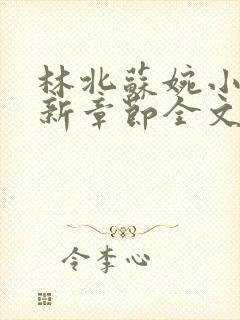 林北蘇婉小
新章節全文
令李心